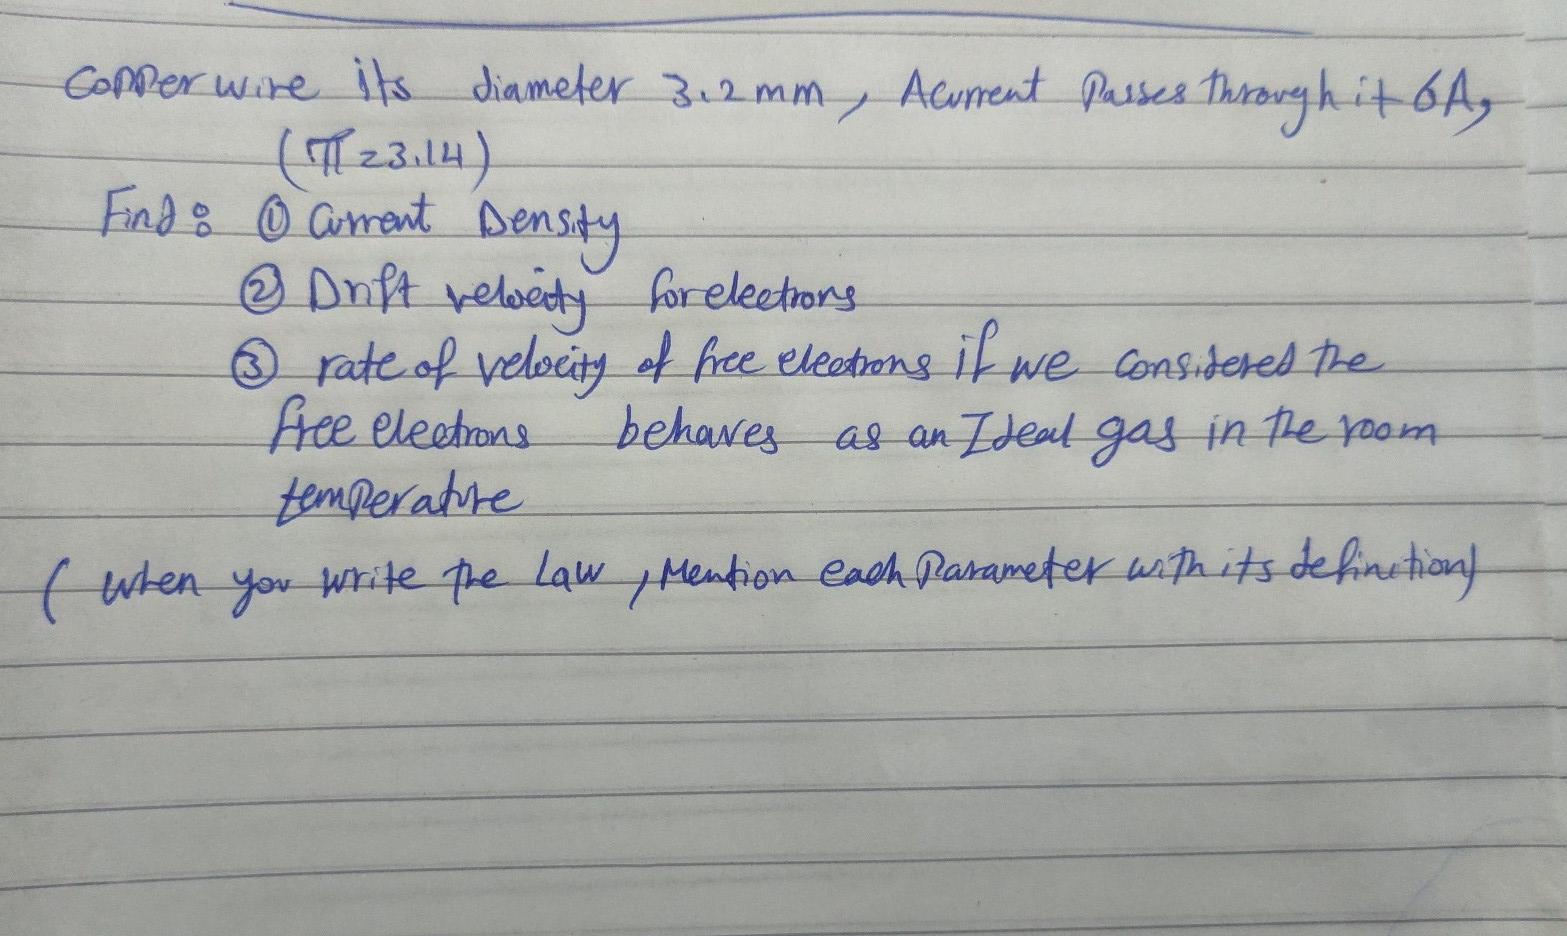 Copper wire its diameter 3.2 mm, A current Passes through it 6A,
(π = 3.14)
Find: ① Current Density
② Drift velocity for electrons
③ rate of velocity of free electrons if we considered the
free electrons behaves as an Ideal gas in the room
temperature
(when you write the law, Mention each Parameter with its definition)